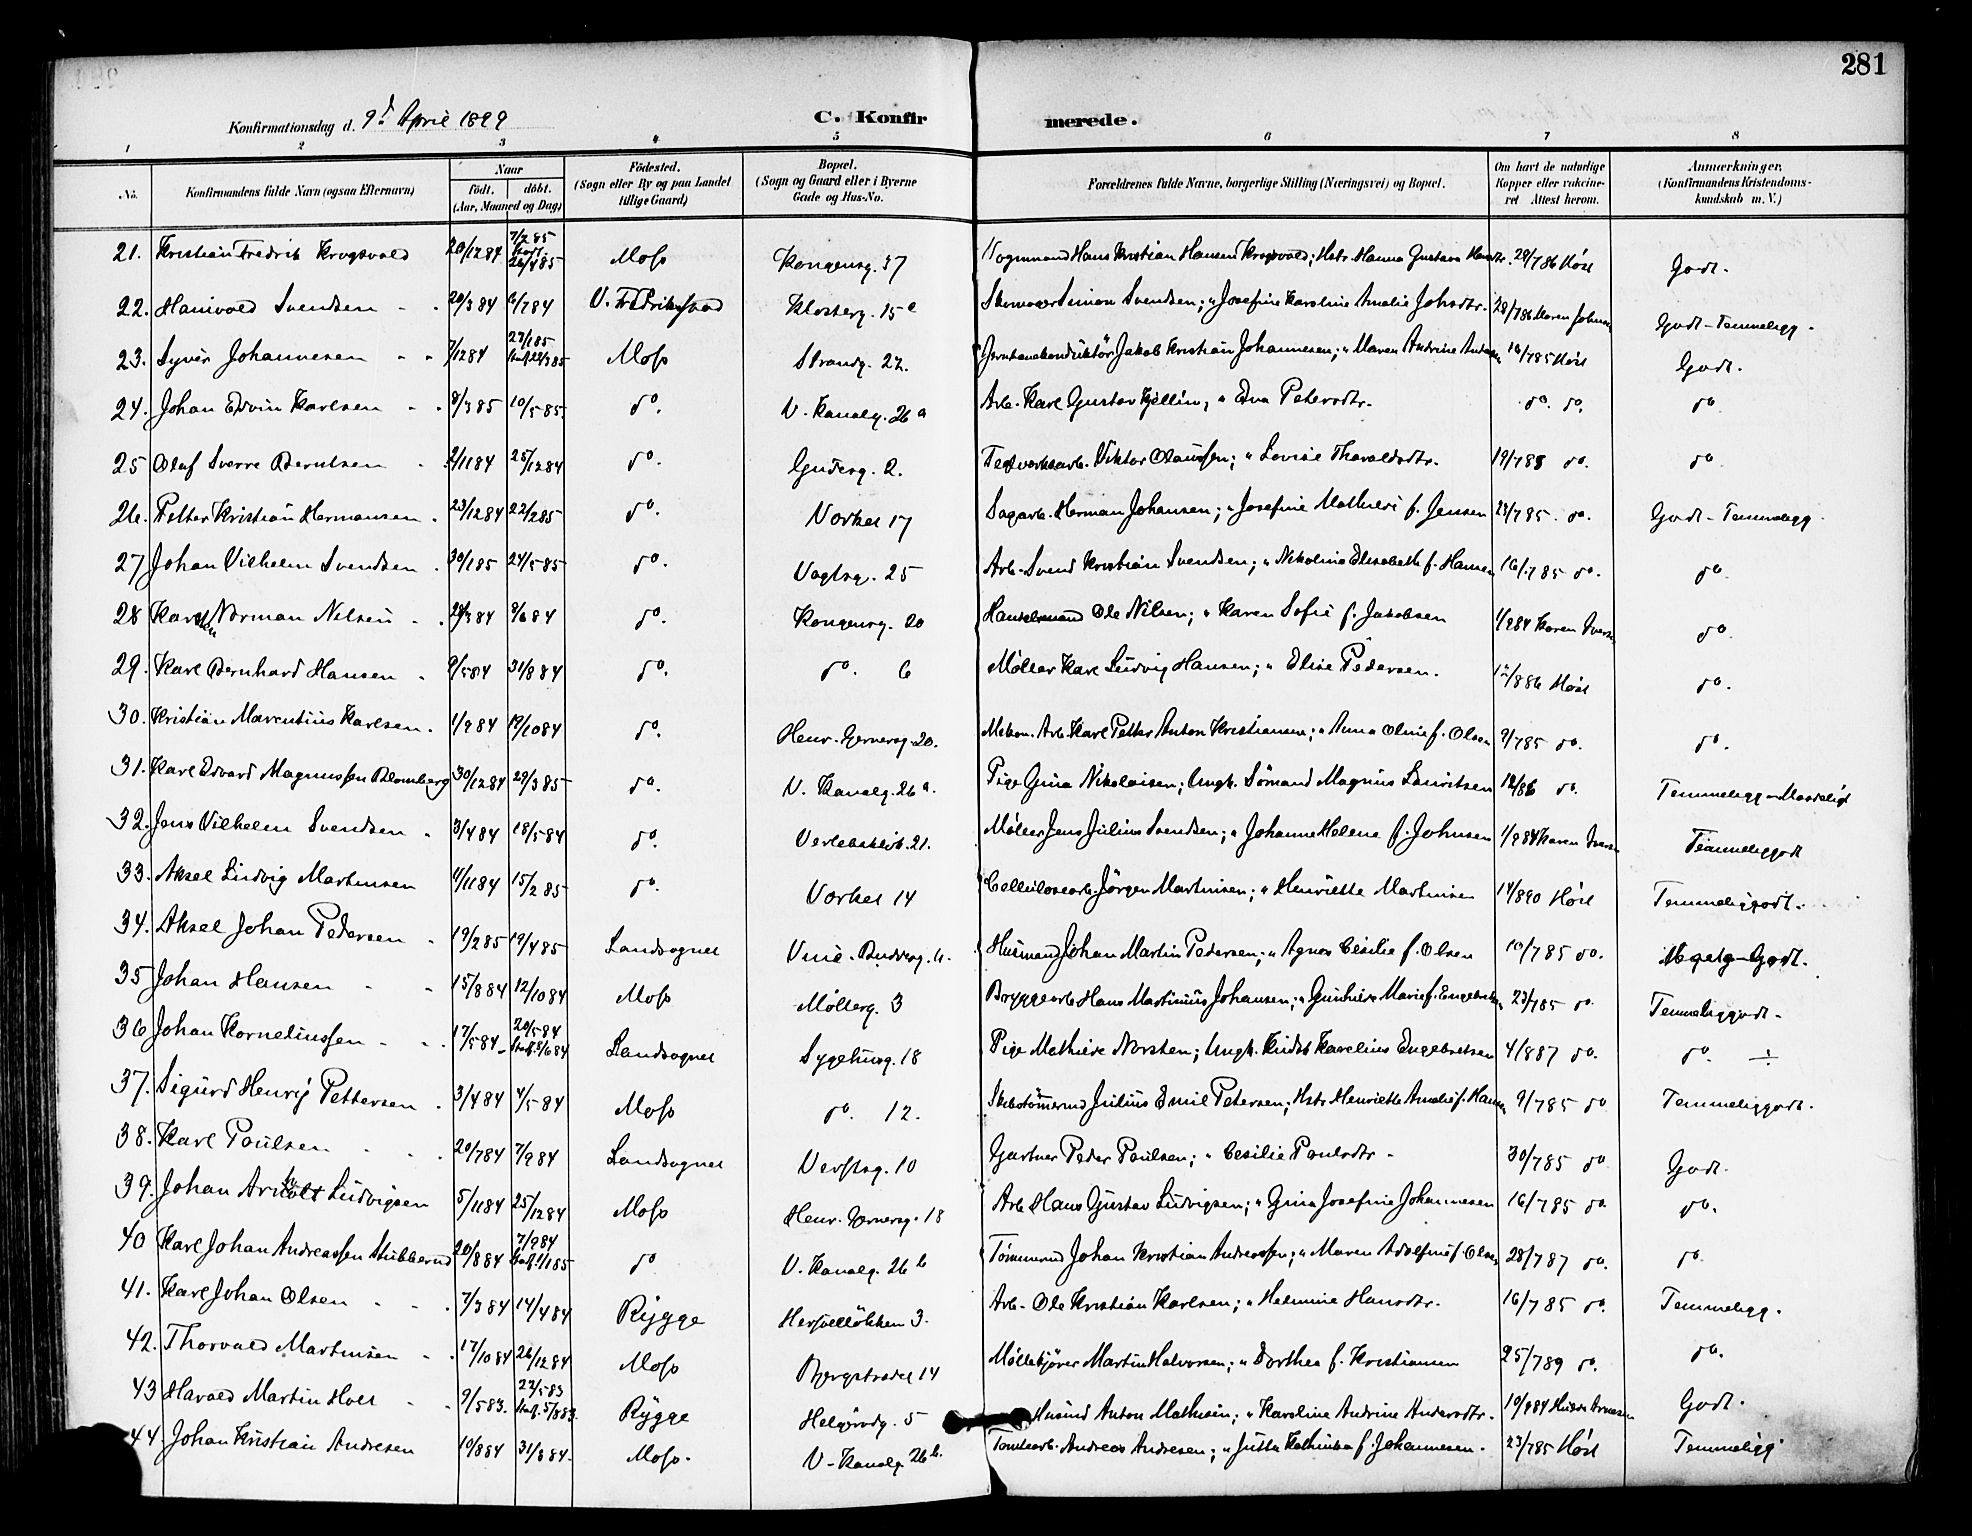 281
Konfirmationsdag d. 9d April 1899
C. Konfirmerede.
1 2 3 4 5 6 7 8
No. Konfirmandens fulde Navn (ogsaa Efternavn) Naar födt. döbt. (Aar, Maaned og Dag) Födested. (Sogn eller By og paa Landet tillige Gaard) Bopæl. (Sogn og Gaard eller i Byerne Gade og Hus-No. Forældrenes fulde Navne, borgerlige Stilling (Næringsvei) og Bopæl. Om havt de naturlige Kopper eller vakcineret Attest herom. Anmærkninger, (Konfirmandens Kristendomskundskab m. V.)
21. Kristian Fredrik Krogsvold 20/12 84 7/2 85 Stadf. 26/4 85 Moss Kongensg. 37 Vognmand Hans Kristian Hansen Krogsvold; Hstr. Hanna Gustava 29/7 86 Höst Godt.
22. Hanivald Svendsen 20/3 84 6/7 84 V. Fredrikstad Klosterg. 15a Skomager Simon Svendsen; " Josefine Karoline Amalie Johsdtr. 28/7 86 Karen Johnsen Godt - Temmeligg.
23. Syver Johannesen 7/12 84 27/1 85 Stadf. 22/3 85 Moss Strandg. 22. Jernbanekonduktör Jakob Kristian Johannesen; " Maren Andrine 16/7 85 Höst Godt.
24. Johan Edvin Karlsen 8/3 85 10/5 85 do. V. Kanalg. 26a Arb. Karl Gustav Kjellin; " Eva Petersdtr. do. do. do
25 Olaf Sverre Berntsen 2/11 84 25/12 84 do. Guderg. 2. Teglverksarb. Viktor Claussen; " Lovise Tharaldsdtr. 19/7 85 do. do
26. Petter Kristian Hermansen 23/12 84 22/2 85 do. Vorkel 17 Sagarb. Herman Johansen; " Josefine Mathilde f. Jensen 23/7 85. do. Godt - Temmeligg.
27 Johan Vilhelm Svendsen 30/1 85 24/5 85 do. Vogtsg. 25 Arb. Svend Kristian Svendsen; " Nikoline Elisabeth f. Hansen 16/7 85 do. do
28 Karsten Norman Nilsen 28/3 84 8/6 84 do. Kongensg. 20 Handelsmand Ole Nilsen; " Karen Sofie f. Jakobsen 1/9 84 Karen Iversen do.
29. Karl Bernhard Hansen 9/5 84 31/8 84 do. do. 6 Møller Karl Ludvig Hansen; " Elise Pedersen. 12/8 86 Höst do.
30. Kristian Marentius Karlsen. 1/9 84 19/10 84 do. Henr. Gernersg. 20. Mekan. Arb. Karl Petter Anton Kristiansen; " Anna Oline f. Olsen 9/7 85 do. do.
31. Karl Edvard Magnussen Blomberg 30/12 84 29/3 85 do. V. Kanalg. 26a. Pige Gina Nikolaisen; Ungk. Sömand Magnus Lauritsen 12/86 do. Temmeligg - Maadeligt
32. Jens Vilhelm Svendsen 3/4 84 18/5 84 do. Verlebakkb. 21. Møller Jens Julius Svendsen; " Johanne Helene f. Johnsen 1/9 84 Karen Iversen Temmeliggodt
33. Aksel Ludvig Martinsen 4/11 84 15/2 85 do. Vorkel 14 Cellulosearb. Jörgen Martinsen; " Henriette Martinsen 14/8 90 Höst Temmeliggodt.
34. Aksel Johan Pedersen 19/2 85 19/4 85 Landsognet Husmand Johan Martin Pedersen; " Agnes Cesilie f. Olsen 10/7 85 do. Megetg - Godt.
35 Johan Hansen 15/8 84 12/10 84 Moss Møllerg. 3 Bryggearb. Hans Martinius Johansen; " Gunhild Marie f. Engebretsen 23/7 85 do. Temmeliggodt.
36 Johan Korneliussen 17/5 84 20/5 84 Stadf. 8/6 84 Landsognet Sygehusg. 18 Pige Mathilde Norsten; Ungk. Kudsk Karelius Engebretsen 4/8 87 do. do. ÷
37. Sigurd Henry Pettersen 3/4 84 4/5 84 Moss do. 12. Skibstömmermd Julius Emil Petersen; Hstr. Henriette Amalie f. Hansen 9/7 85 do Temmeliggodt.
38. Karl Paulsen 20/7 84 7/9 84 Landsognet Verftsg. 10 Gartner Peder Paulsen; " Cesilie Paulsdtr. 30/7 85 do Godt.
39. Johan Arnholt Ludvigsen 5/11 84 25/12 84 Moss Henr. Gernersg. 18 Arb. Hans Gustav Ludvigsen; " Gina Josefine Johannesen 16/7 85 do. do.
40 Karl Johan Andreassen Stubberud 20/8 84 7/9 84 Stadf. 1/1 85 do V. Kanalg. 26 b Tömmermd Johan Kristian Andreassen; " Maren Adolfine f. Olsen 28/7 87 do. do.
41. Karl Johan Olsen 7/3 84 14/4 84 Rygge Herselløkken 3. Arb. Ole Kristian Karlsen; " Helmine Hansdtr. 16/7 85 do. Temmeligg.
42. Thorvald Martinsen 17/10 84 26/12 84 Moss Bergstradet 14 Møllekjører Martin Halvorsen; " Dorthea f. Kristiansen 25/7 89 do. do.
43 Harald Martin Holt 9/5 83. 27/5 83 Stadf. 5/8 83. Rygge Helgerødg. 5 Husmd Anton Mathisen; " Karoline Andrine Andersdtr. 10/8 84 Godt.
44. Johan Kristian Andresen 10/8 84 31/8 84. Moss. V. Kanalg. 26 b. Tomtearb. Andreas Andresen; " Jutta Kathinka f. Johannesen. 23/7 85 Höst Temmeligg